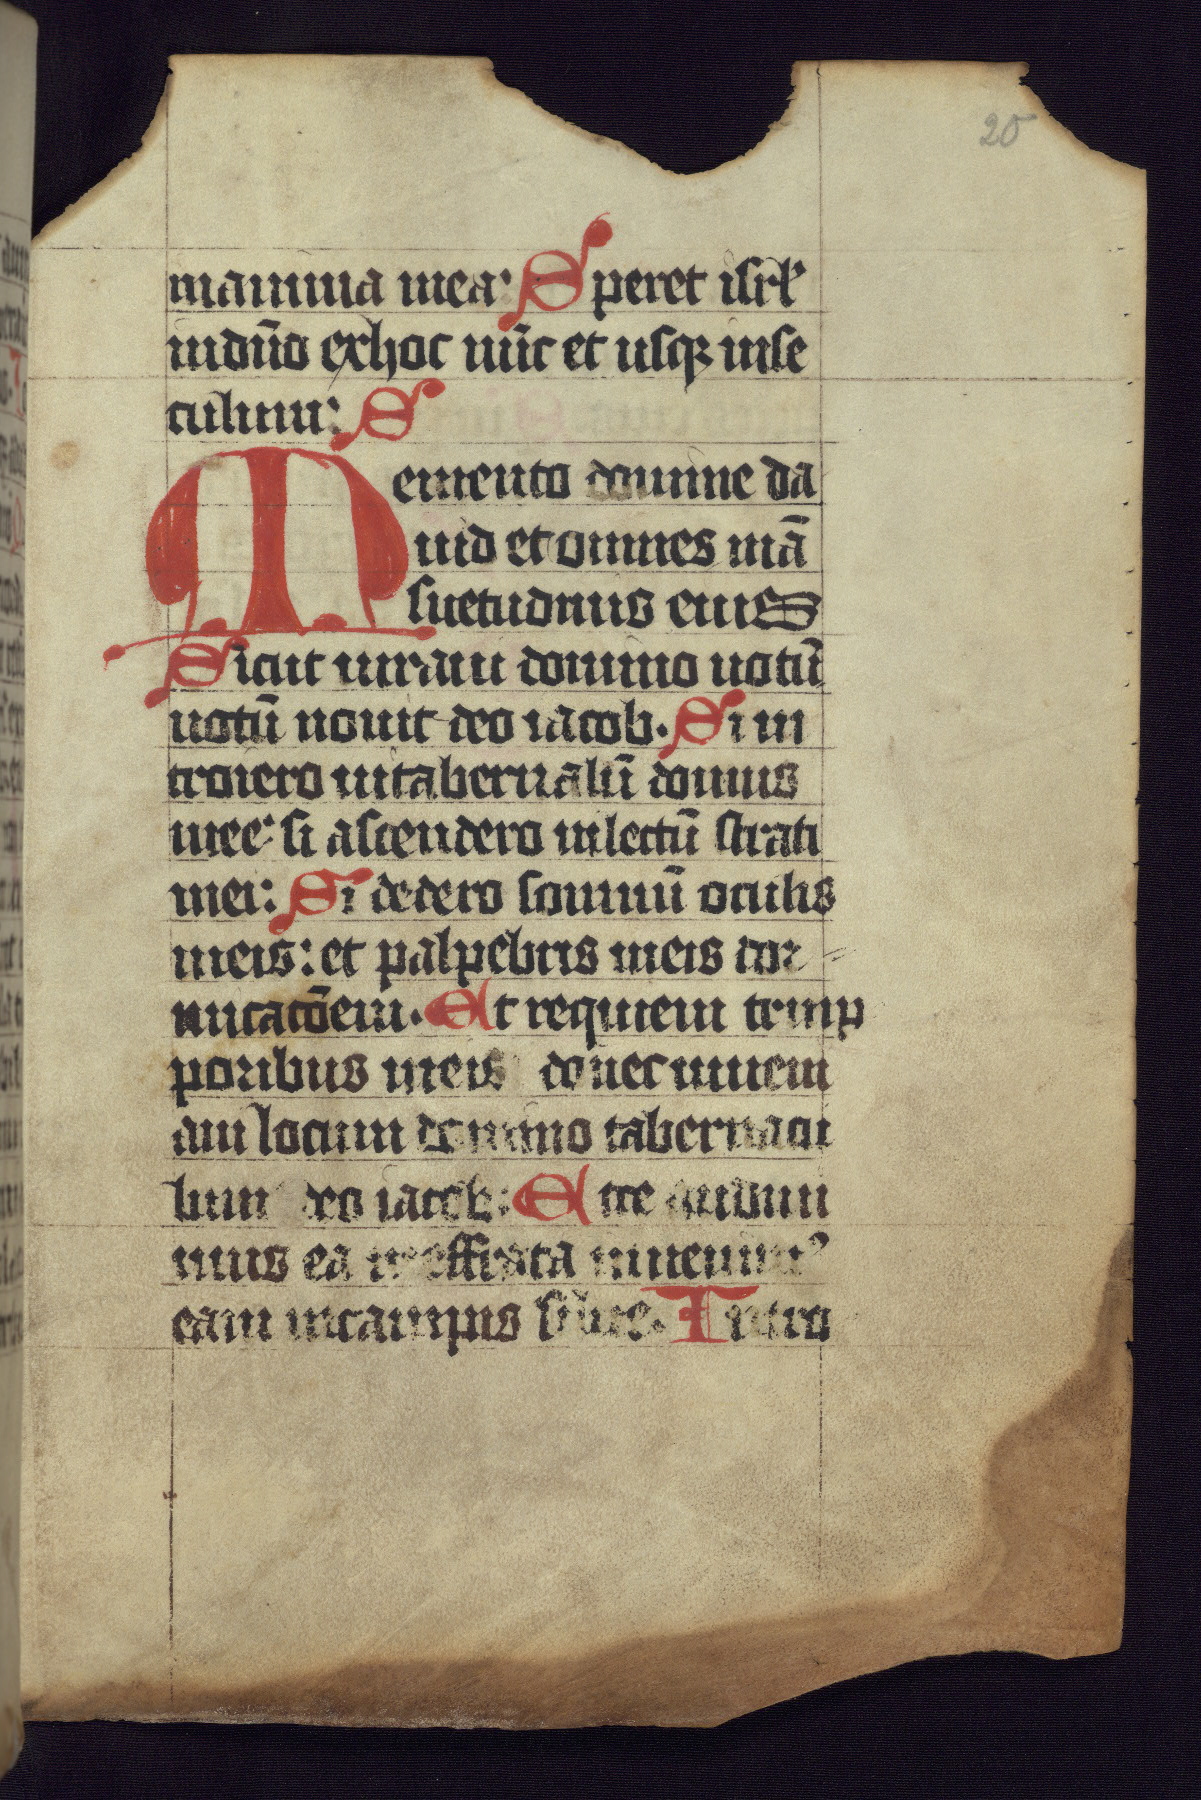 20
manima mea: Speret isrl'
indn̄o exhoc nūc et usq3 inse
culum: S
Memento domine da
uid et omnes mā
suetudinis eius
Sicut iurauit domino uotū
uotū uouit deo iacob. Si in
troiero intabernalū domus
mee: si ascendero inlectū strati
mei: Si dedero somnū oculis
meis: et palpebris meis dor
mitacōem. Et requiem temp
poribus meis donec inuem
am locum domino tabernacu
lum deo iacob: Ecce audiui
mus ea in effrata inuenim9
eam incampis silue. Intro